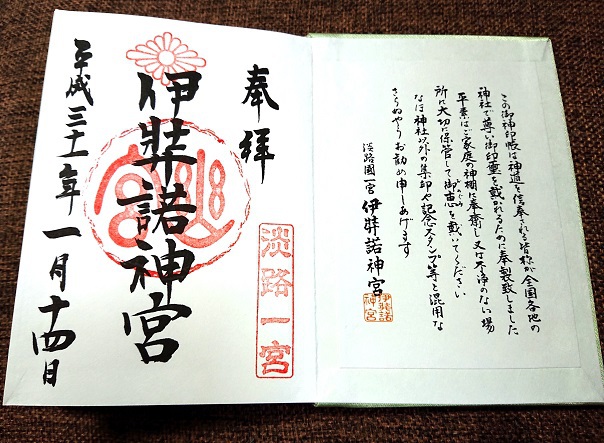 この御神印帳は神道を信奉される皆様が全国各地の
神社で尊い御印璽を戴かれるために奉製致しました
平素はご家庭の神棚に奉齋し又は不浄のない場
所に大切に保管して御恵を戴いてください
なほ神社以外の集印や記念スタンプ等と混用な
さらぬやうお勧め申しあげます
淡路國一宮 伊弉諾神宮
伊弉諾
神宮
奉拝
淡路一宮
伊弉諾神宮
平成三十一年一月十四日